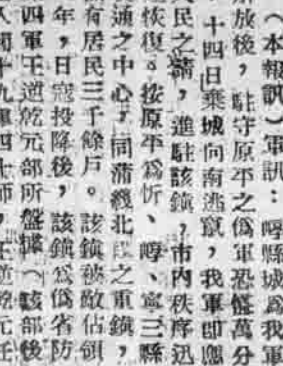 （本報訊）軍訊：崞縣城爲我軍
放後，駐守原平之僞軍恐慌萬分
十四日棄城向南逃竄，我軍即應
人民之請，進駐該鎮，市內秩序迅
恢復。按原平爲忻、崞、寧三縣
通之中心，同蒲綫北段之重鎮，
有居民三千餘戶。該鎮被敵佔領
年，日寇投降後，該鎮爲僞省防
四軍王逆乾元部所盤據（該部後